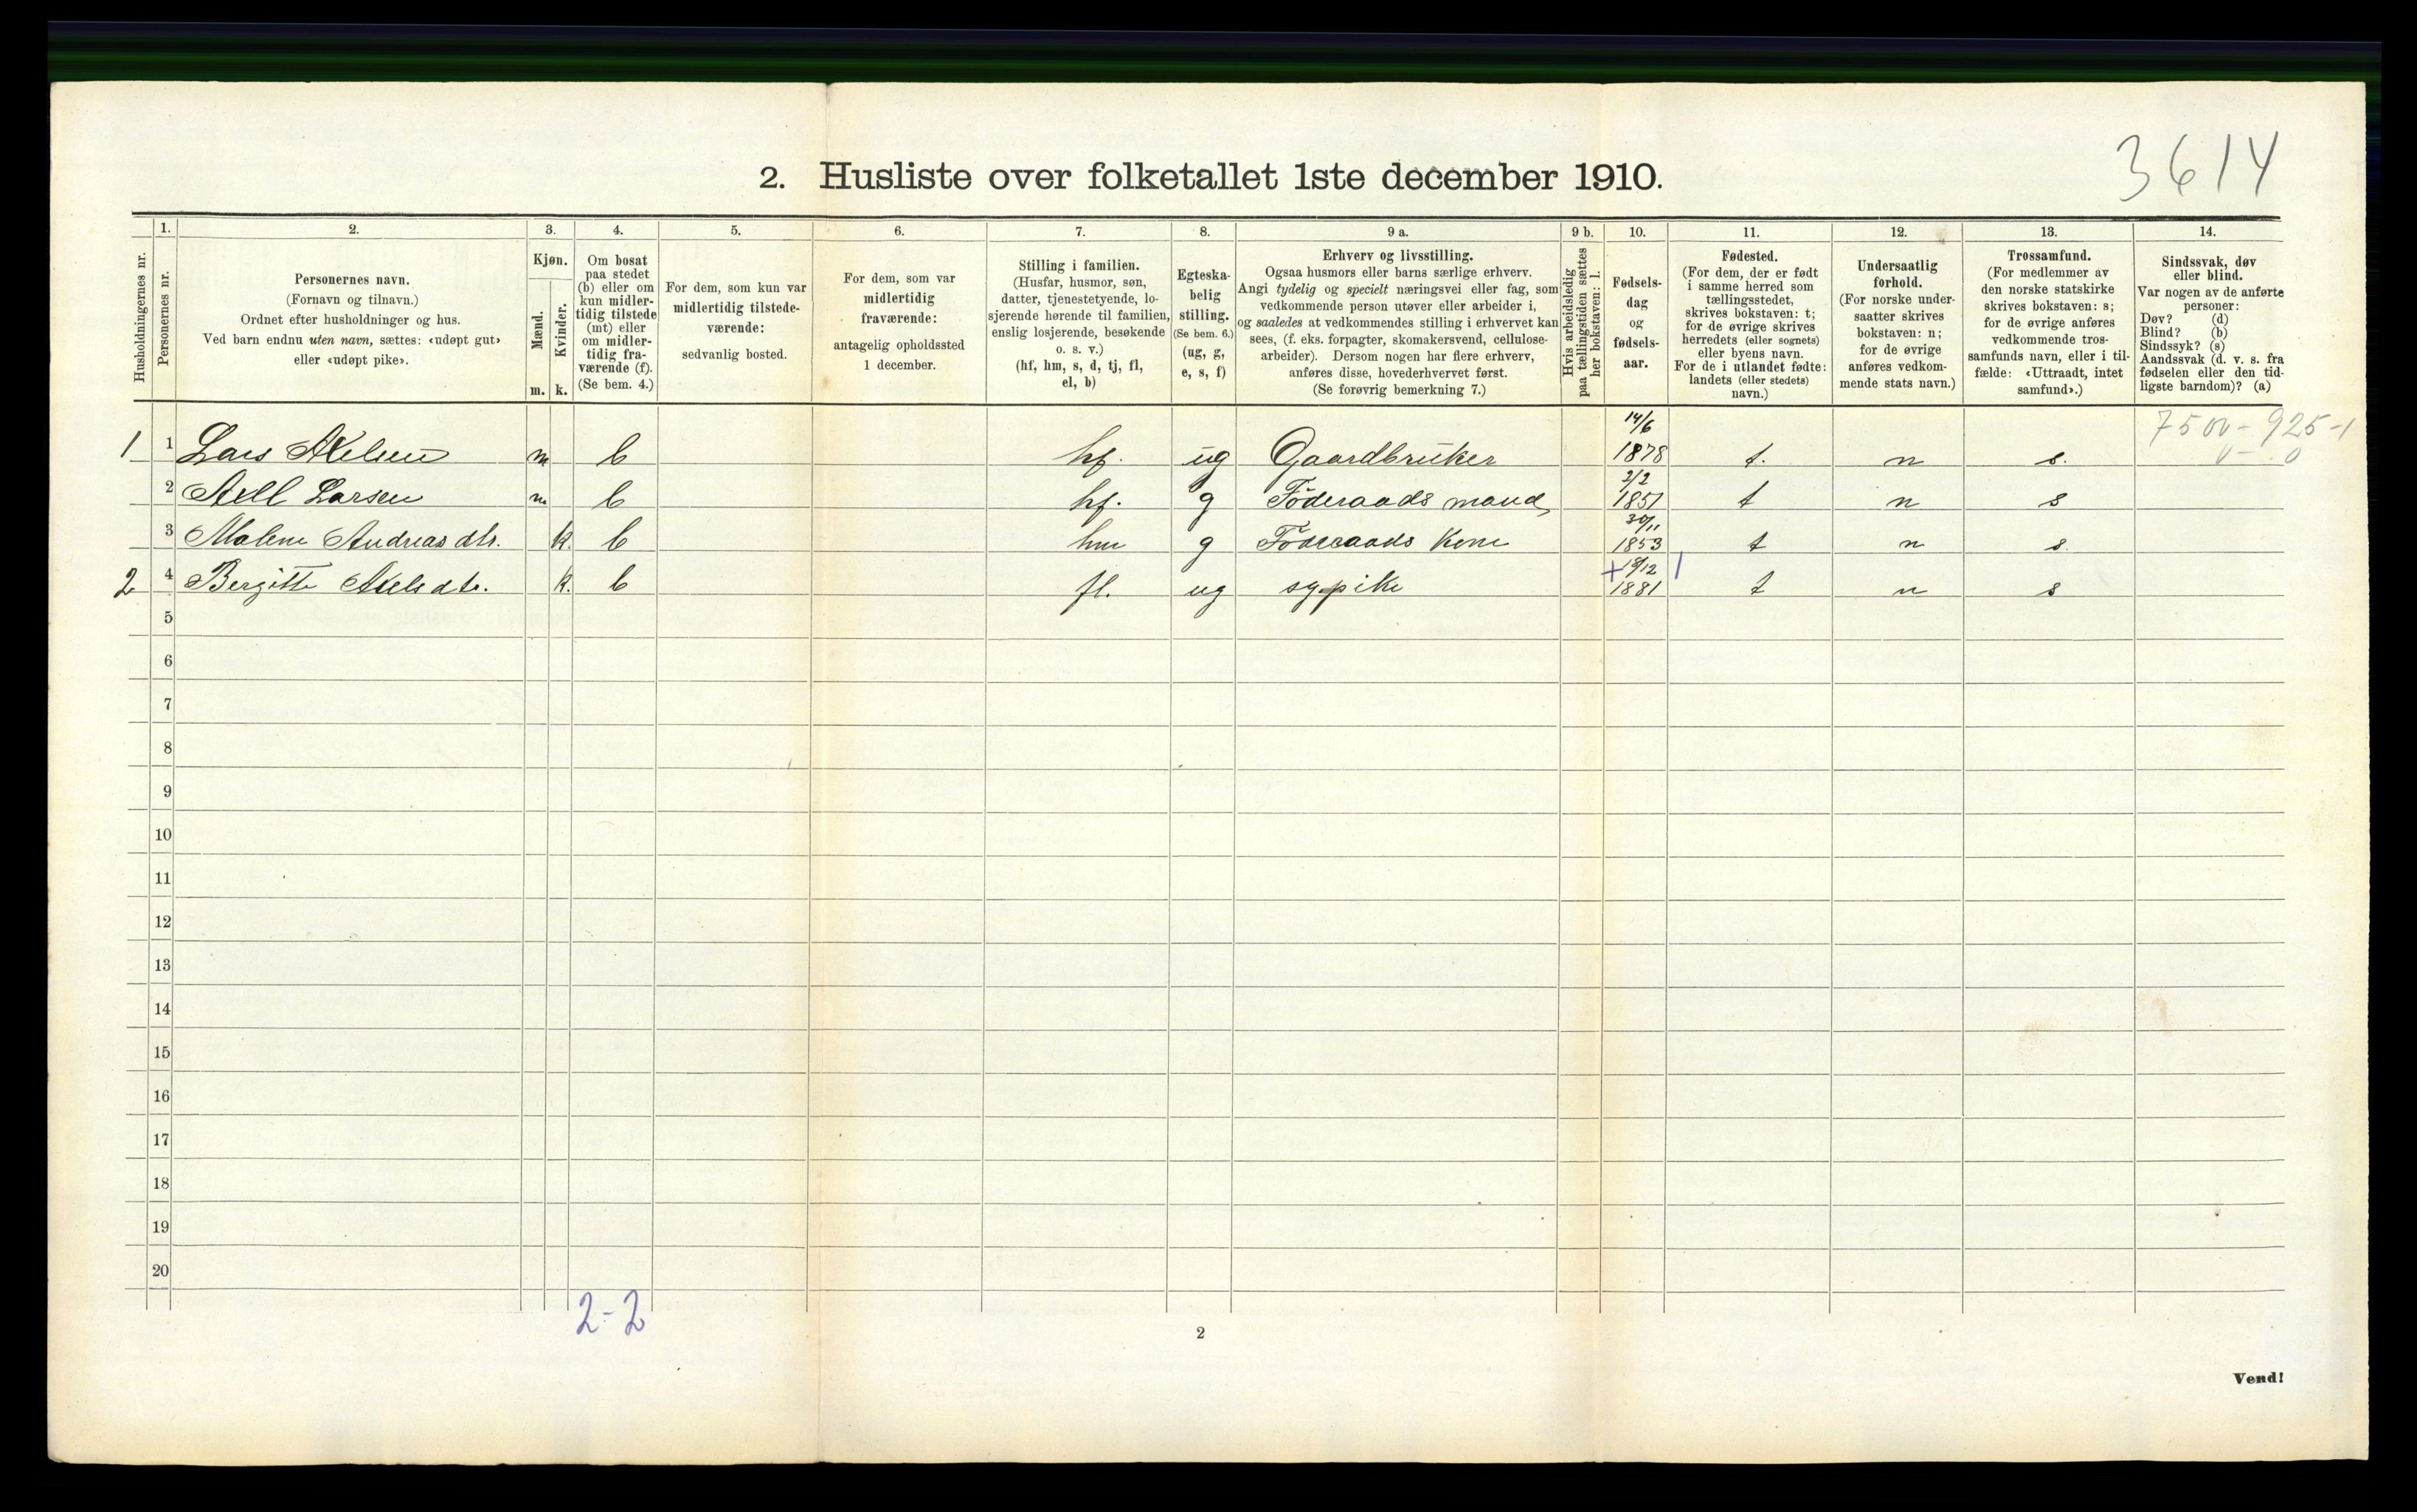 3614
2. Husliste over folketallet 1ste december 1910.
Husholdningernes nr.
1.
Personernes nr.
2.
Personernes navn.
(Fornavn og tilnavn.)
Ordnet efter husholdninger og hus.
Ved barn endnu uten navn, sættes: «udøpt gut»
eller «udøpt pike».
3.
Kjøn.
Mænd.
Kvinder.
m. k.
4.
Om bosat
paa stedet
(b) eller om
kun midler-
tidig tilstede
(mt) eller
om midler-
tidig fra-
værende (f).
(Se bem. 4.)
5.
For dem, som kun var
midlertidig tilstede-
værende:
sedvanlig bosted.
6.
For dem, som var
midlertidig
fraværende:
antagelig opholdssted
1 december.
7.
Stilling i familien.
(Husfar, husmor, søn,
datter, tjenestetyende, lo-
sjerende hørende til familien,
enslig losjerende, besøkende
o. s. v.)
(hf, hm, s, d, tj, fl,
el, b)
8.
Egteska-
belig
stilling.
(Se bem. 6.)
(ug, g,
e, s, f)
9 a.
Erhverv og livsstilling.
Ogsaa husmors eller barns særlige erhverv.
Angi tydelig og specielt næringsvei eller fag, som
vedkommende person utøver eller arbeider i,
og saaledes at vedkommendes stilling i erhvervet kan
sees, (f. eks. forpagter, skomakersvend, cellulose-
arbeider). Dersom nogen har flere erhverv,
anføres disse, hovederhvervet først.
(Se forøvrig bemerkning 7.)
9 b.
Hvis arbeidsledig
paa tællingstiden sættes
her bokstaven: l.
10.
Fødsels-
dag
og
fødsels-
aar.
11.
Fødested.
(For dem, der er født
i samme herred som
tællingsstedet,
skrives bokstaven: t;
for de øvrige skrives
herredets (eller sognets)
eller byens navn.
For de i utlandet fødte:
landets (eller stedets)
navn.)
12.
Undersaatlig
forhold.
(For norske under-
saatter skrives
bokstaven: n;
for de øvrige
anføres vedkom-
mende stats navn.)
13.
Trossamfund.
(For medlemmer av
den norske statskirke
skrives bokstaven: s;
for de øvrige anføres
vedkommende tros-
samfunds navn, eller i til-
fælde: «Uttraadt, intet
samfund».)
14.
Sindssvak, døv
eller blind.
Var nogen av de anførte
personer:
Døv? (d)
Blind? (b)
Sindssyk? (s)
Aandssvak (d. v. s. fra
fødselen eller den tid-
ligste barndom)? (a)
7500 - 925-1
0 - 0
1 1 Lars Axelsen m b hf. ug Gaardbruker 14/6 1878 t. n s.
2 Axel Larsen m b hf. g Föderaads mand 2/2 1851 t n s
3 Malene Andreasdtr. k. b hm g Föderaads Kone 30/11 1853 t n s.
2 4 Bergitte Axelsdtr. k. b fl. ug sypike + 18/12 1881 t n s
5
6
7
8
9
10
11
12
13
14
15
16
17
18
19
20
2-2
2
Vend!